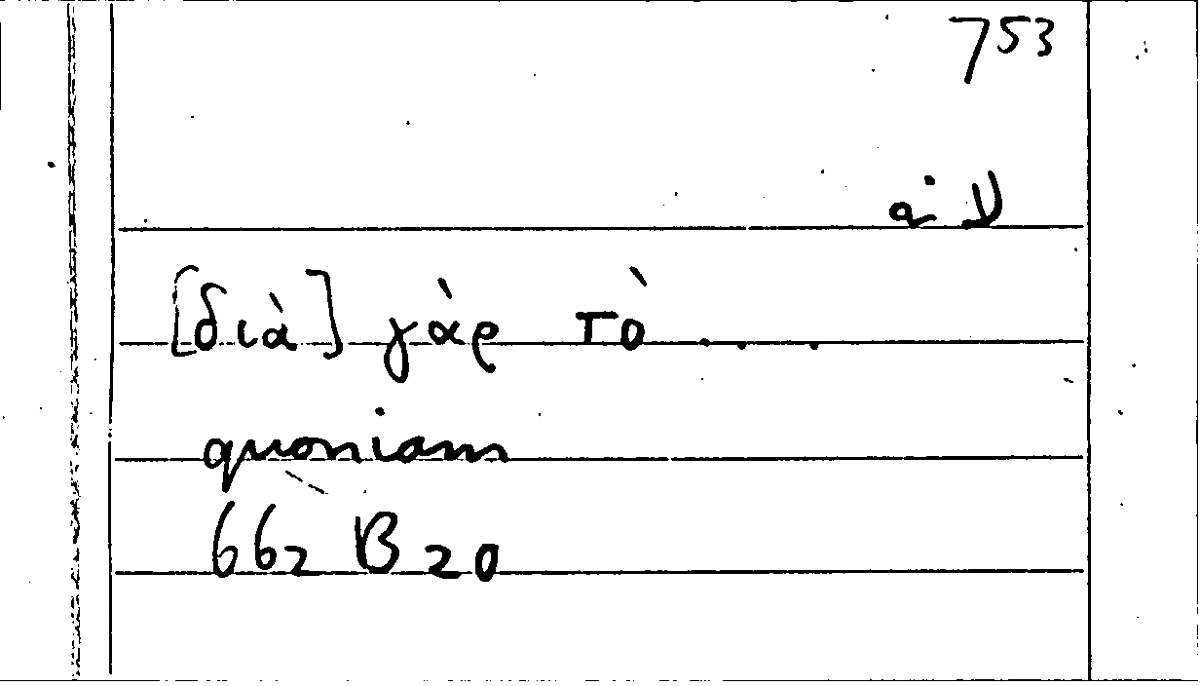 753
[διὰ] γὰρ τὸ ....
quoniam
662 B 20